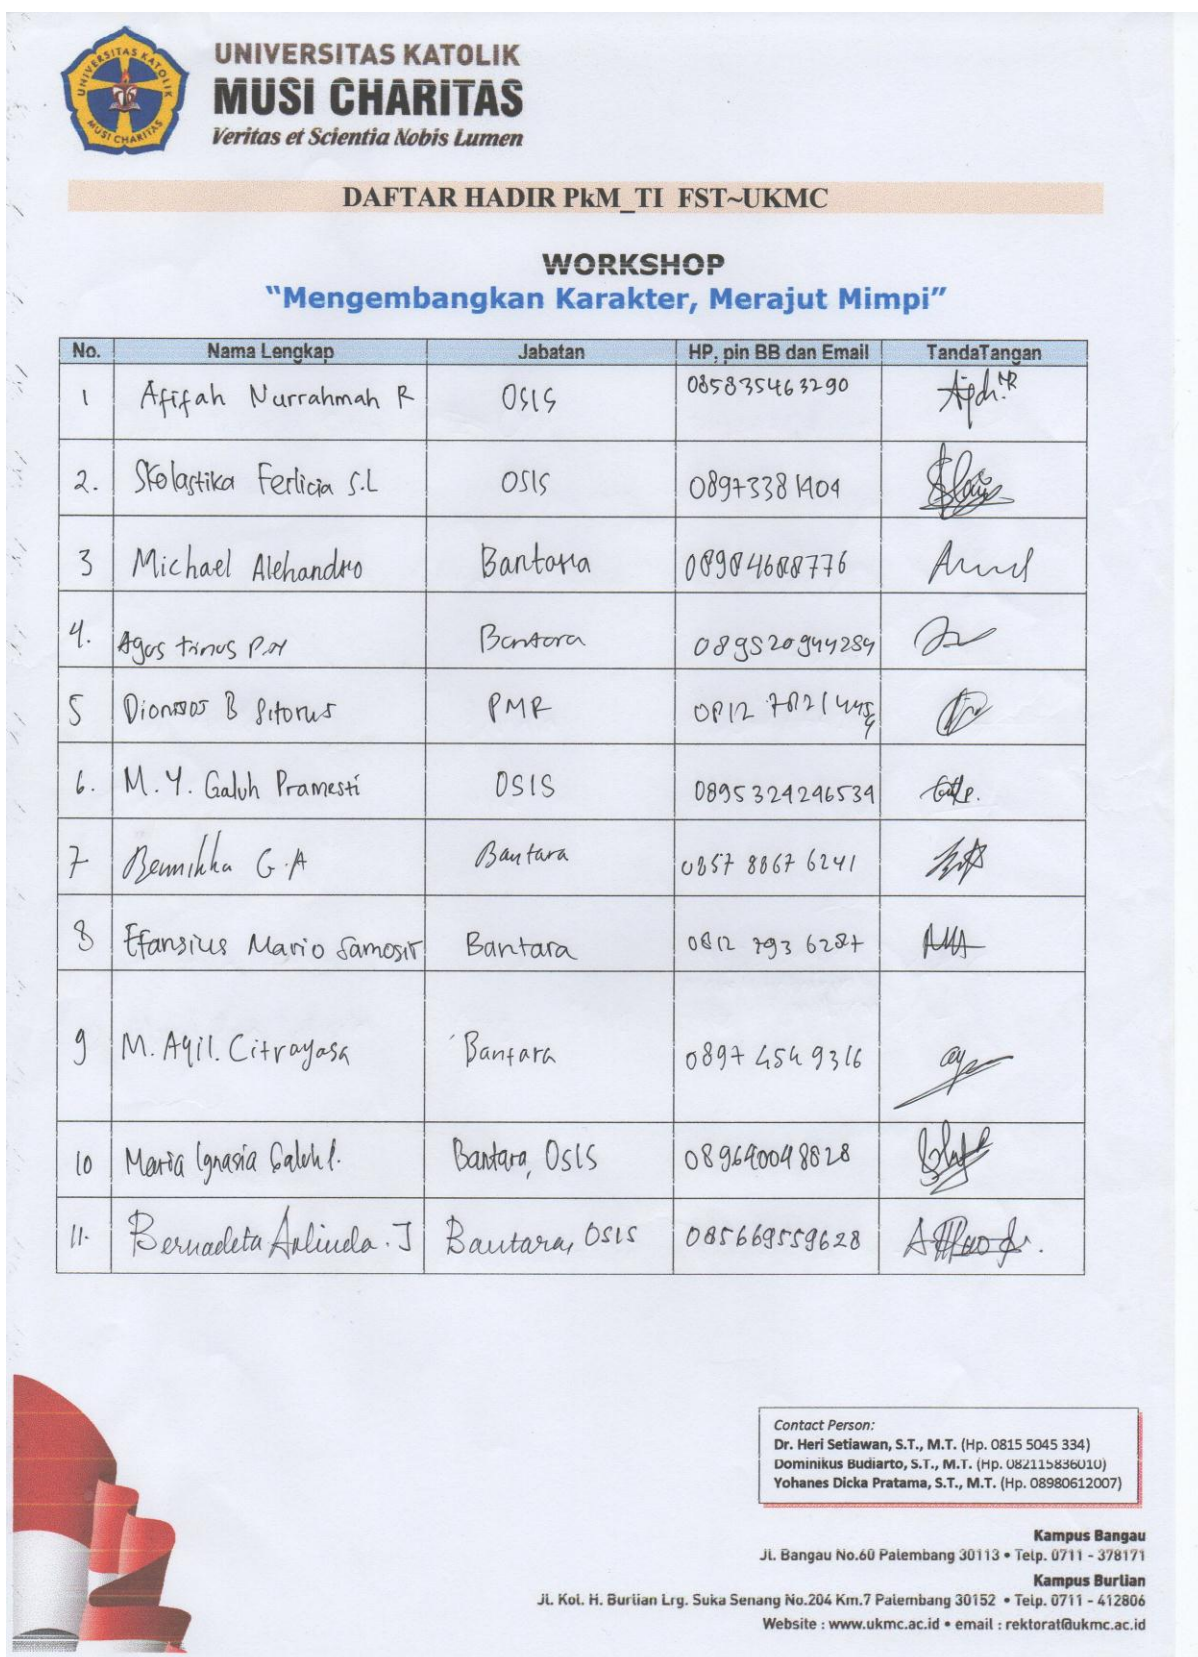 UNIVERSITAS KATOLIK
MUSI CHARITAS
Veritas et Scientia Nobis Lumen
UNIVERSITAS KATOLIK
MUSI CHARITAS
DAFTAR HADIR PkM_TI FST~UKMC
WORKSHOP
"Mengembangkan Karakter, Merajut Mimpi"
No. Nama Lengkap Jabatan HP, pin BB dan Email TandaTangan
1 Afifah Nurrahmah R OSIS 085835463290
2. Skolastika Ferlicia S.L OSIS 08973381404
3 Michael Alehandro Bantara 08984688776
4. Agustinus Bantara 089520944284
5 B Sitorus PMR 0812
6. M. Y. Galuh Pramesti OSIS 0895324296539
7 G.A Bantara 0857 8867 6241
8 Efansius Mario Samosir Bantara 0812 793 6287
9 M. Aqil. Citrayasa Bantara 0897 454 9316
10 Maria Ignasia Galuh P. Bantara, OSIS 089640048828
11. Bernadeta Arlinda. J Bantara, OSIS 085669559628
Contact Person:
Dr. Heri Setiawan, S.T., M.T. (Hp. 0815 5045 334)
Dominikus Budiarto, S.T., M.T. (Hp. 082115836010)
Yohanes Dicka Pratama, S.T., M.T. (Hp. 08980612007)
Kampus Bangau
Jl. Bangau No.60 Palembang 30113 • Telp. 0711 - 378171
Kampus Burlian
Jl. Kol. H. Burlian Lrg. Suka Senang No.204 Km.7 Palembang 30152 • Telp. 0711 - 412806
Website : www.ukmc.ac.id • email : rektorat@ukmc.ac.id